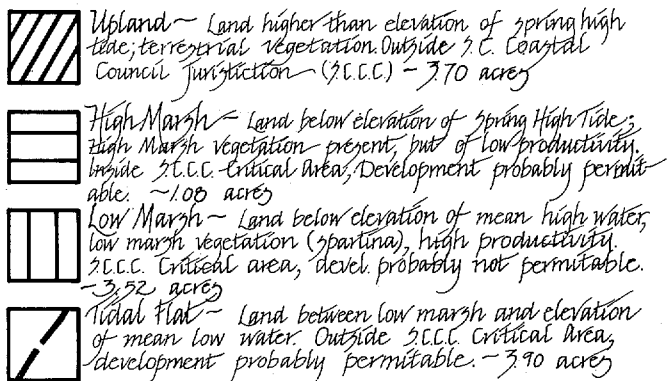 Upland~ Land higher than elevation of spring high
tide; terrestrial vegetation. Outside S.C. Coastal
Council juristiction (S.C.C.C.) ~ 3.70 acres
High Marsh~ Land below elevation of Spring High Tide;
High Marsh vegetation present, but of low productivity.
Inside S.C.C.C. Critical Area, Development probably permit-
able. ~1.08 acres
Low Marsh~ Land below elevation of mean high water,
low marsh vegetation (spartina), high productivity.
S.C.C.C. Critical area, devel. probably not permitable.
~3.52 acres
Tidal Flat~ Land between low marsh and elevation
of mean low water. Outside S.C.C.C. Critical Area,
development probably permitable. ~3.90 acres